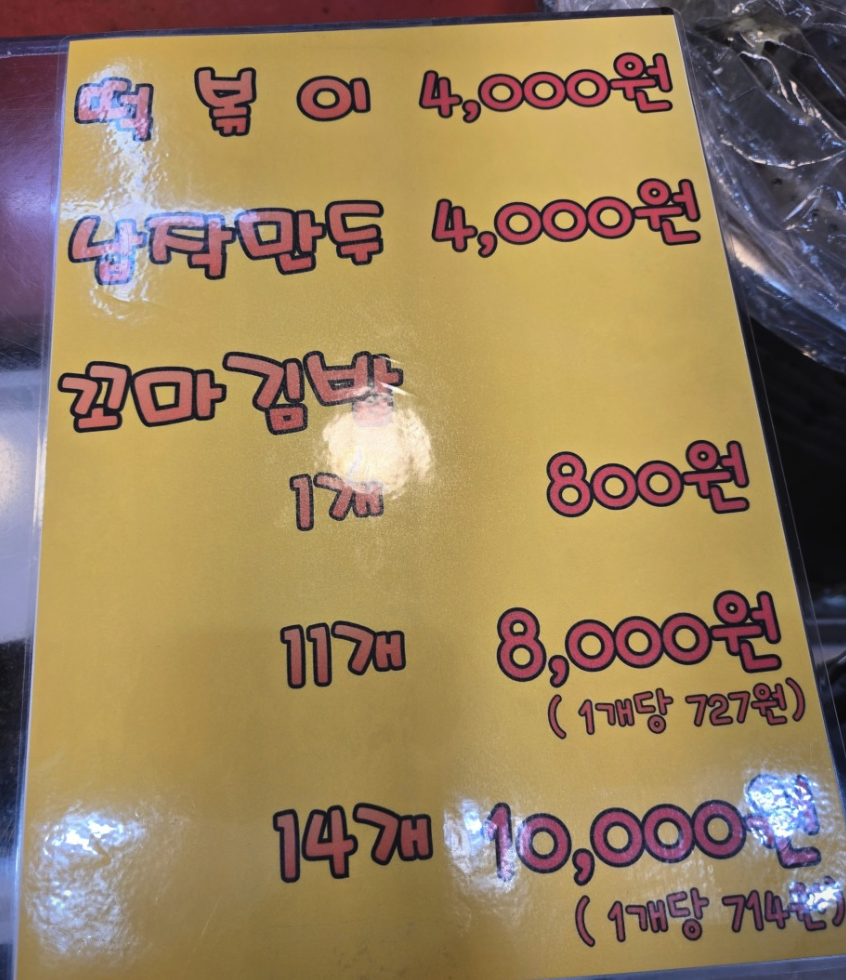 떡볶이 4,000원
납작만두 4,000원
꼬마김밥
1개 800원
11개 8,000원
( 1개당 727원)
14개 10,000원
( 1개당 714원)